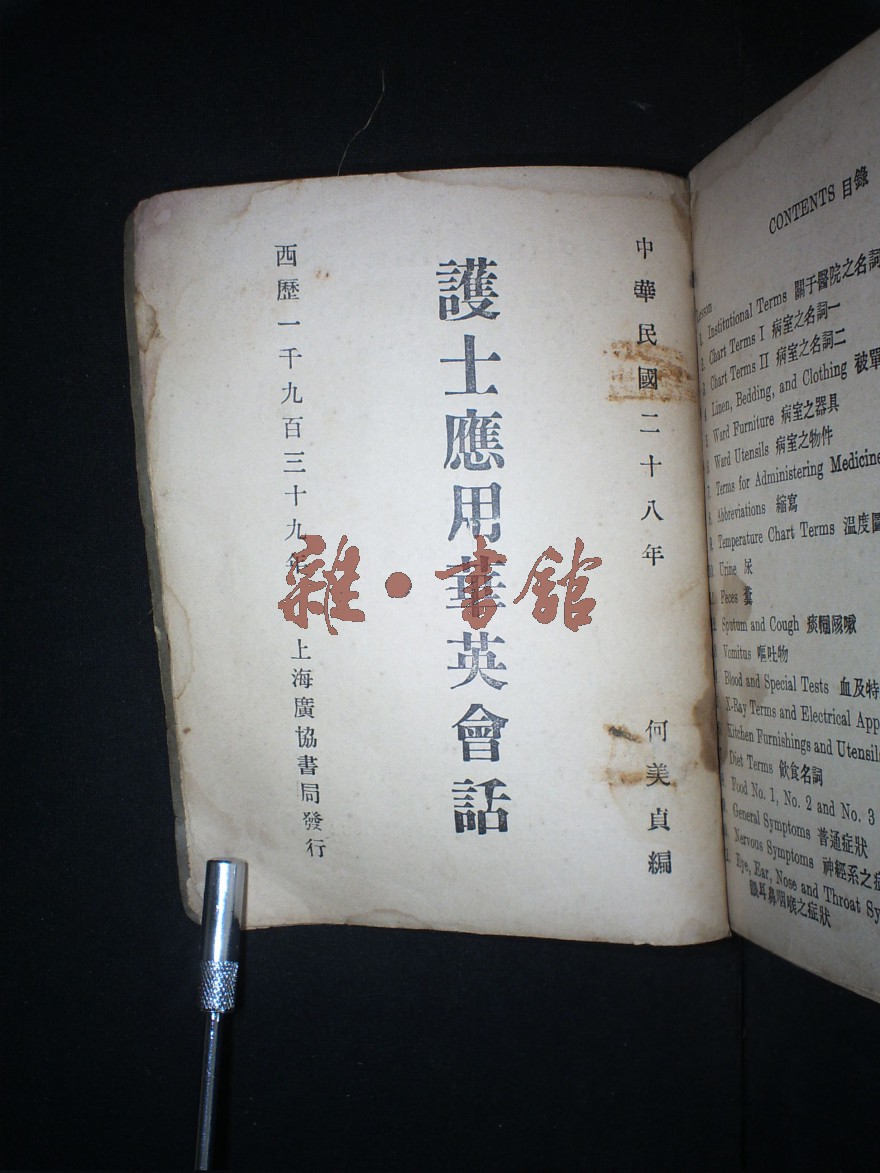 中華民國二十八年
何美貞編
護士應用華英會話
西歷一千九百三十九年
上海廣協書局發行
雜·書館
CONTENTS 目錄
Lesson
1. Institutional Terms 關于醫院之名詞
2. Chart Terms I 病室之名詞一
3. Chart Terms II 病室之名詞二
4. Linen, Bedding, and Clothing 被單
5. Ward Furniture 病室之器具
6. Ward Utensils 病室之物件
7. Terms for Administering Medicine
8. Abbreviations 縮寫
9. Temperature Chart Terms 溫度圖
10. Urine 尿
Feces 糞
Sputum and Cough 痰咳嗽
Vomitus 嘔吐物
Blood and Special Tests 血及特
X-Ray Terms and Electrical App
Kitchen Furnishings and Utensils
Diet Terms 飲食名詞
Food No. 1, No. 2 and No. 3
General Symptoms 普通症狀
Nervous Symptoms 神經系之症
Eye, Ear, Nose and Throat Sy
眼耳鼻咽喉之症狀